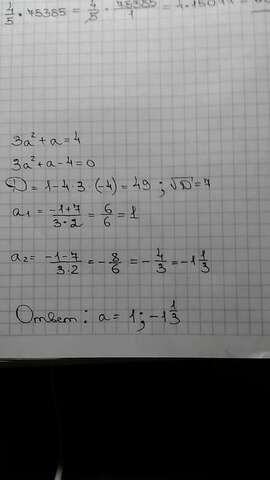 4/5 · 75385 = 4/5 · 75385/1 = 4 · 150
3a² + a = 4
3a² + a - 4 = 0
D = 1 - 4 · 3 · (-4) = 49 ; √D = 7
a₁ = (-1+7)/(3·2) = 6/6 = 1
a₂ = (-1-7)/(3·2) = -8/6 = -4/3 = -1 1/3
Ответ: a = 1; -1 1/3